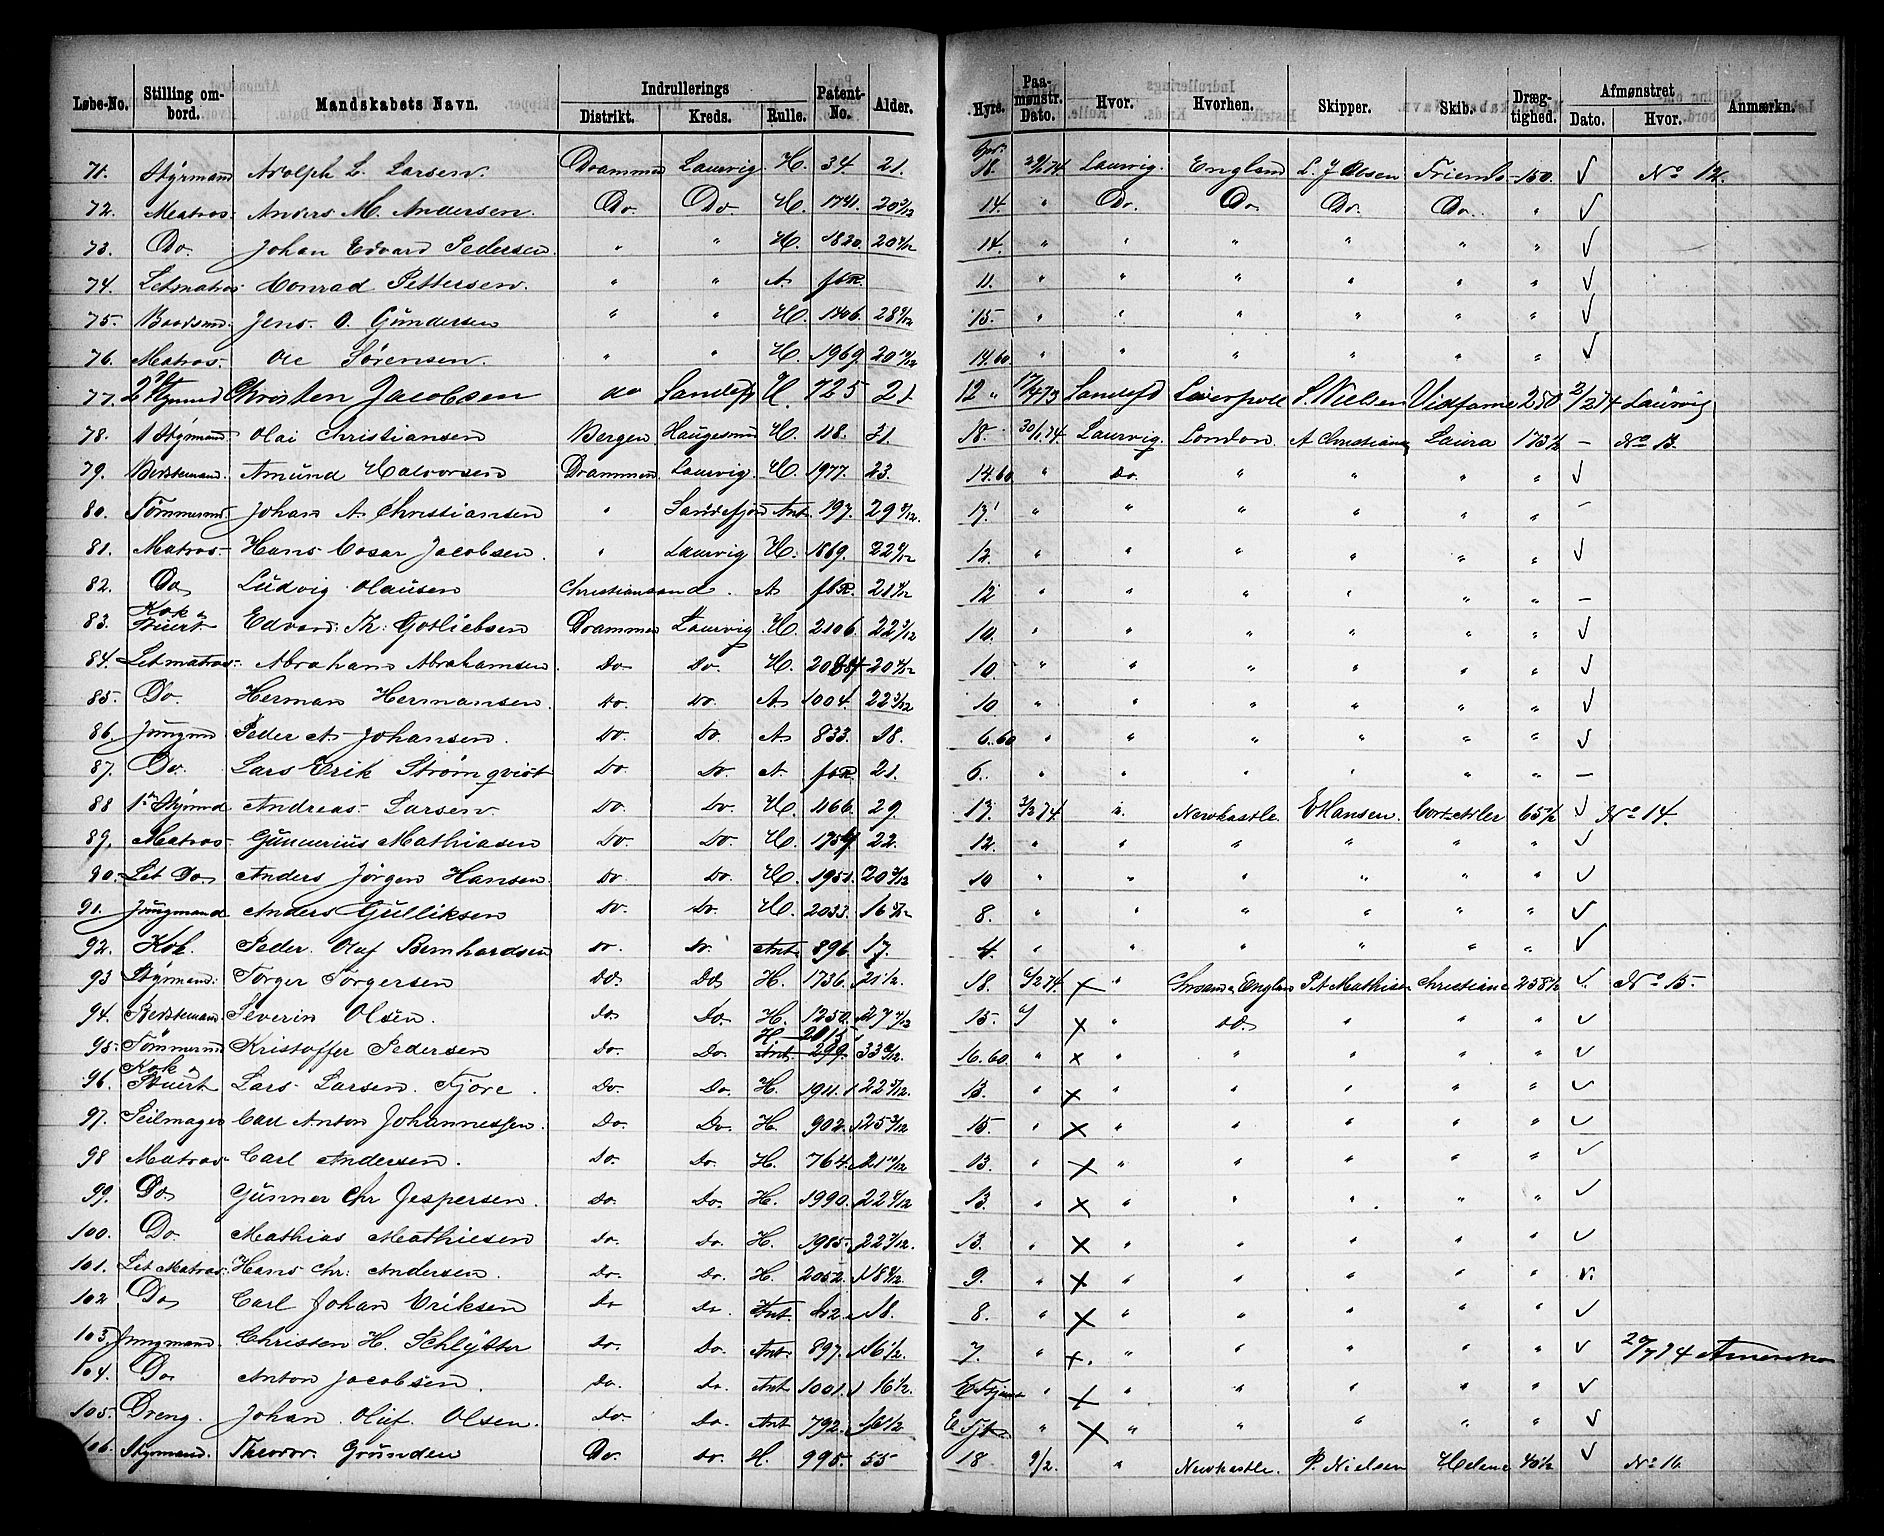 Løbe-No. Stilling ombord. Mandskabets Navn. Indrullerings Distrikt. Kreds. Rulle. Patent-No. Alder. Hyre. Paamønstr. Dato. Hvor. Hvorhen. Skipper. Skib. Drægtighed. Afmønstret Dato. Hvor. Anmærkn.
71. Styrmand Adolph L. Larsen. Drammen Laurvig H. 34. 21. Spd. 18. Laurvig. England L. J Olsen 150. √ No 12.
72. Matros. Anders M. Andersen. Do. Do. H. 1741. 14. " Do. Do. Do. Do. " √
73. Do. Johan Edvard Pedersen. " " H. 1820. 14. " " " " " " √
74. Letmatros Konrad Pettersen. " " A fbR. 11. " " " " " " √
75. Baadsmd. Jens. O. Gundersen " " H. 1406. 15. " " " " " " √
76. Matros. Ole Sørensen. " " H. 1969 14.60 " " " " " " √
77. 2den Styrmd Christen Jacobsen do Sandefj H. 725 21 12 " 17/4 73 Sandefd Liverpool S. Nielsen Vidfarne 250 2/2 74 Laurvig
78. 1 Styrmand. Olai Christiansen Bergen Haugesund H. 118. 31. 18. 30/1 74 Laurvig. London. A Christians Laura 173½ – No 13.
79. Bestemand. Amund Halvorsen Drammen. Laurvig. H. 1977. 23. 14.60 " Do. " " " " √
80. Tømmermd. Johan A. Christiansen " Sandefjord Ant. 197. 17. " " " " " " –
81. Matros Hans Cæsar Jacobsen. " Laurvig H. 1869. 12. " " " " " " √
82. Do Ludvig Olausen Christiansand. A fbR. 12 " " " " " " –
83. Kok & Stuert Edvard. Th. Gotliebsen Drammen Laurvig H. 2106. 10. " " " " " " √
84. Letmatros Abraham Abrahamsen Do Do. H. 10. " " " " " " √
85. Do. Herman Hermansen. Do. Do. A 1004. 10 " " " " " " √
86. Jungmd Peder A. Johansen. Do. Do. A 833. 18. 6.60 " " " " " " √
87. Do. Lars Erik Strömqvist Do. Do. A. fbR. 21. 6. " " " " " " –
88 1ste Styrmd Andreas Larsen. Do. Do. H. 1166. 29. 17. 3/2 74 ". Newkastle. E Hansen. Cort Adler 65½ √ No 14.
89. Matros Gunnerius Mathiasen Do. Do. H. 22. 12. " " " " " " √
90. Let Do. Anders Jørgen Hansen. Do. Do. H. 1951. 10 " " " " " " √
91. Jungmand Anders Gulliksen Do. Do. H. 2033. 8. " " " " " " √
92. Kok. Peder. Oluf Bernhardsen Do. Do. Ant. 896 17. 4. " " " " " " √
93 Styrmand. Torger Torgersen Do Do H. 1736. 21½. 18. 6/2 74 x " P. A Mathisen Christiane 258½ √ No 15.
94. Bestemand Severin Olsen. Do Do. H. 1250. 15. x " Do " " " √
95. Tømmermd Kristoffer Pedersen Do. Do. H. 2015 Ant. 299. 16.60. " x " " " " " √
96. Kok & Stuert Lars Larsen. Fjøre. Do. Do. H. 1911. 13. " x " " " " " √
97. Seilmager Carl Anton Johannessen. Do. Do. H. 902. 15. " x " " " " " √
98 Matros Carl Andersen. Do. Do. H. 764. 13. " x " " " " " √
99. Do Gunner Chr Jespersen. Do. Do. H. 1990. 13. " x " " " " " √
100. Do. Mathias Mathiesen Do. Do. H. 1985. 13. " x " " " " " √
101. Let Matros. Hans Chr. Andersen. Do. Do. H. 2052. 9. " x " " " " " √
102 Do Carl Johan Eriksen Do Do. Ant. 18. 8. " x " " " " " √
103. Jungmand. Christen H. Schlytter Do. Do. Ant. 897. 16½. 7. " x. " " " " " √ Amerika
104. Do Anton Jacobsen. Do. Do. Ant 1001. 16½. " x " " " " " √
105. Dreng. Johan. Oluf. Olsen. Do. Do. Ant 792. " x " " " " " √
106. Styrmand. Theodor. Grønden Do. Do. H. 995. 55 18 9/2. " Newkastle. P. Nielsen Helene 40½ √ No 16.